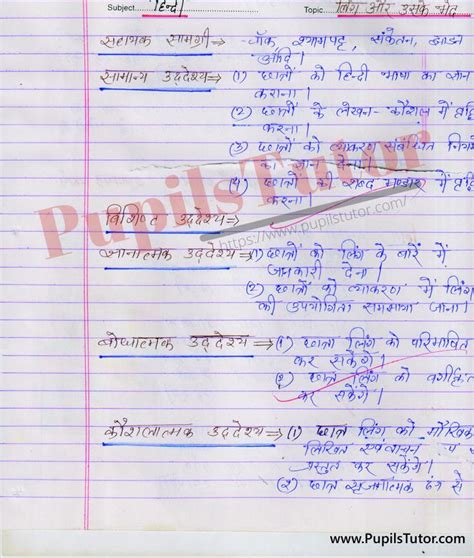 Subject: हिन्दी Topic: लिंग और उसके भेद
सहायक सामग्री ⇒ चॉक, श्यामपट्ट, संकेतन, झाडन
आदि।
सामान्य उद्देश्य ⇒ (1) छात्रों को हिन्दी भाषा का ज्ञान
कराना।
(2) छात्रों के लेखन-कौशल में वृद्धि
करना।
(3) छात्रों को व्याकरण संबंधित नियमों
का ज्ञान देना।
(4) छात्रों की शब्द भण्डार में वृद्धि
करना।
PupilsTutor
https://www.pupilstutor.com/
विशिष्ट उद्देश्य ⇒
ज्ञानात्मक उद्देश्य ⇒ (1) छात्रों को लिंग के बारे में
जानकारी देना।
(2) छात्रों को व्याकरण में लिंग
की उपयोगिता समझाना।
बोधात्मक उद्देश्य ⇒ (1) छात्र लिंग को परिभाषित
कर सकेंगे।
(2) छात्र लिंग को वर्गीकृत
कर सकेंगे।
कौशलात्मक उद्देश्य ⇒ (1) छात्र लिंग को मौखिक
लिखित
प्रस्तुत कर सकेंगे।
(2) छात्र सृजनात्मक ढंग से
www.PupilsTutor.Com